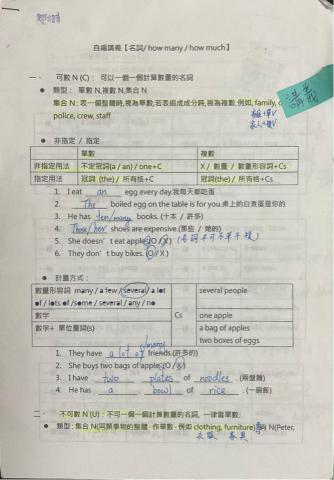 自編講義【名詞/ how many / how much】
講義
一、 可數 N (C)： 可以一個一個計算數量的名詞
● 類型： 單數 N,複數 N,集合 N
集合 N : 表一個整體時,視為單數;若表組成成分時,視為複數.例如, family,
police, crew, staff
● 非指定 / 指定
單數 複數
非指定用法 不定冠詞(a / an) / one+C X / 數量 / 數量形容詞+Cs
指定用法 冠詞 (the) / 所有格+C 冠詞(the) / 所有格+Cs
1. I eat an egg every day.我每天都吃蛋
2. The boiled egg on the table is for you.桌上的白煮蛋是你的
3. He has ten/many books. (十本 / 許多)
4. Those/her shoes are expensive.(那些 / 她的)
5. She doesn't eat apple.(O / X) (名詞不可不單不複)
6. They don't buy bikes. (O / X)
● 計量方式：
數量形容詞 many / a few / several / a lot
of / lots of /some / several / any / no
數字
數字+ 單位量詞(s)
Cs
several people
one apple
a bag of apples
two boxes of eggs
1. They have a lot of /many friends.(許多的)
2. She buys two bags of apple.(O / X)
3. I have two plates of noodles. (兩盤麵)
4. He has a bowl of rice. (一碗飯)
二、 不可數 N (U)：不可一個一個計算數量的名詞, 一律當單數.
● 類型 : 集合 N(同類事物的整體 - 作單數 - 例如 clothing, furniture) N(Peter,
衣服 家具